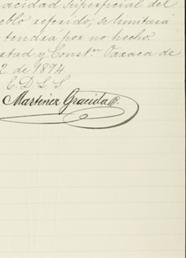 acidad superficial del
eblo referido, se limitará
tendrá por no hecho.
rtad y Const.ⁿ Oaxaca de
2 de 1894
E. D. L. S
Martínez Gracida